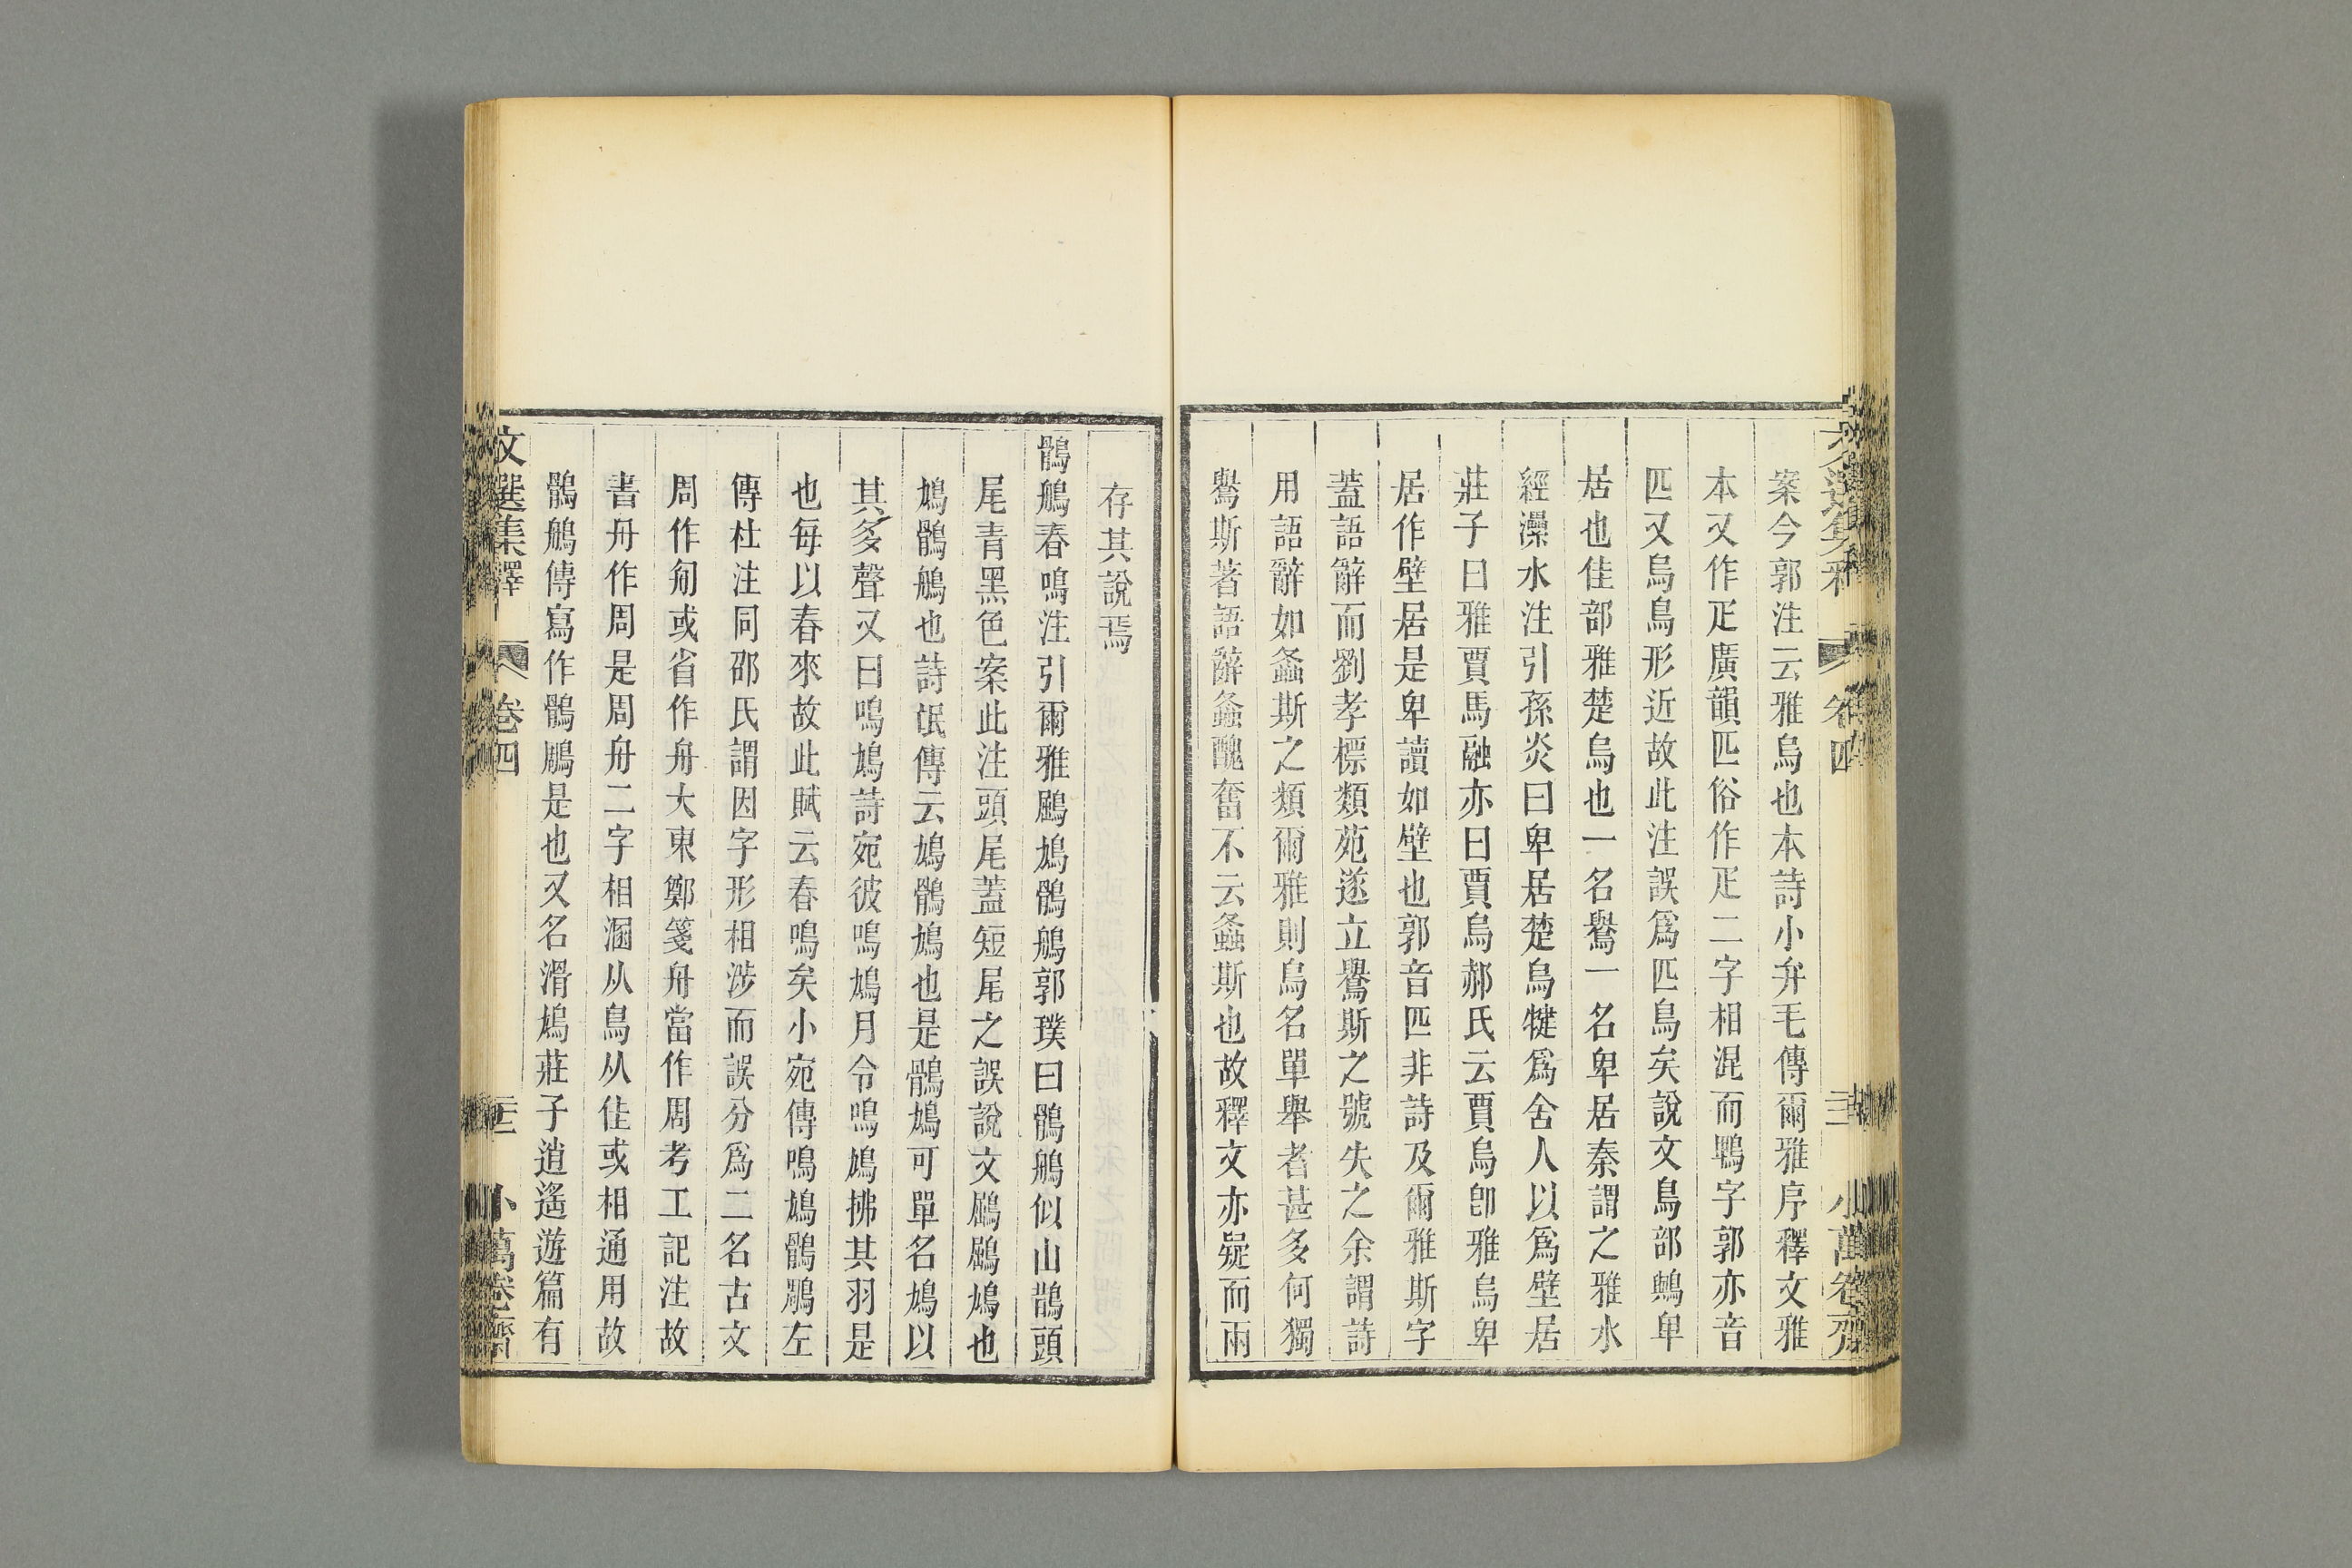 案今郭注云雅烏也本詩小弁毛傳爾雅序釋文雅
本又作疋廣韻匹俗作疋二字相混而鴨字郭亦音
匹又烏鳥形近故此注誤爲匹鳥矣說文鳥部鵯卑
居也隹部雅楚烏也一名鸒一名卑居秦謂之雅水
經㶟水注引孫炎曰卑居楚烏犍爲舍人以爲壁居
莊子曰雅賈馬融亦曰賈烏郝氏云賈烏卽雅烏卑
居作壁居是卑讀如壁也郭音匹非詩及爾雅斯字
蓋語辭而劉孝標類苑遂立鸒斯之號失之余謂詩
用語辭如螽斯之類爾雅則鳥名單舉者甚多何獨
鸒斯著語辭螽醜奮不云螽斯也故釋文亦疑而兩
存其說焉
鶻鵃春鳴注引爾雅鶌鳩鶻鵃郭璞曰鶻鵃似山鵲頭
尾青黑色案此注頭尾蓋短尾之誤說文鶌鶌鳩也
鳩鶻鵃也詩氓傳云鳩鶻鳩也是鶻鳩可單名鳩以
其多聲又曰鳴鳩詩宛彼鳴鳩月令鳴鳩拂其羽是
也每以春來故此賦云春鳴矣小宛傳鳴鳩鶻鵰左
傳杜注同邵氏謂因字形相涉而誤分爲二名古文
周作匊或省作舟大東鄭箋舟當作周考工記注故
書舟作周是周舟二字相溷从鳥从隹或相通用故
鶻鵃傳寫作鶻鵰是也又名滑鳩莊子逍遙遊篇有
文選集釋 卷四 小萬卷齋